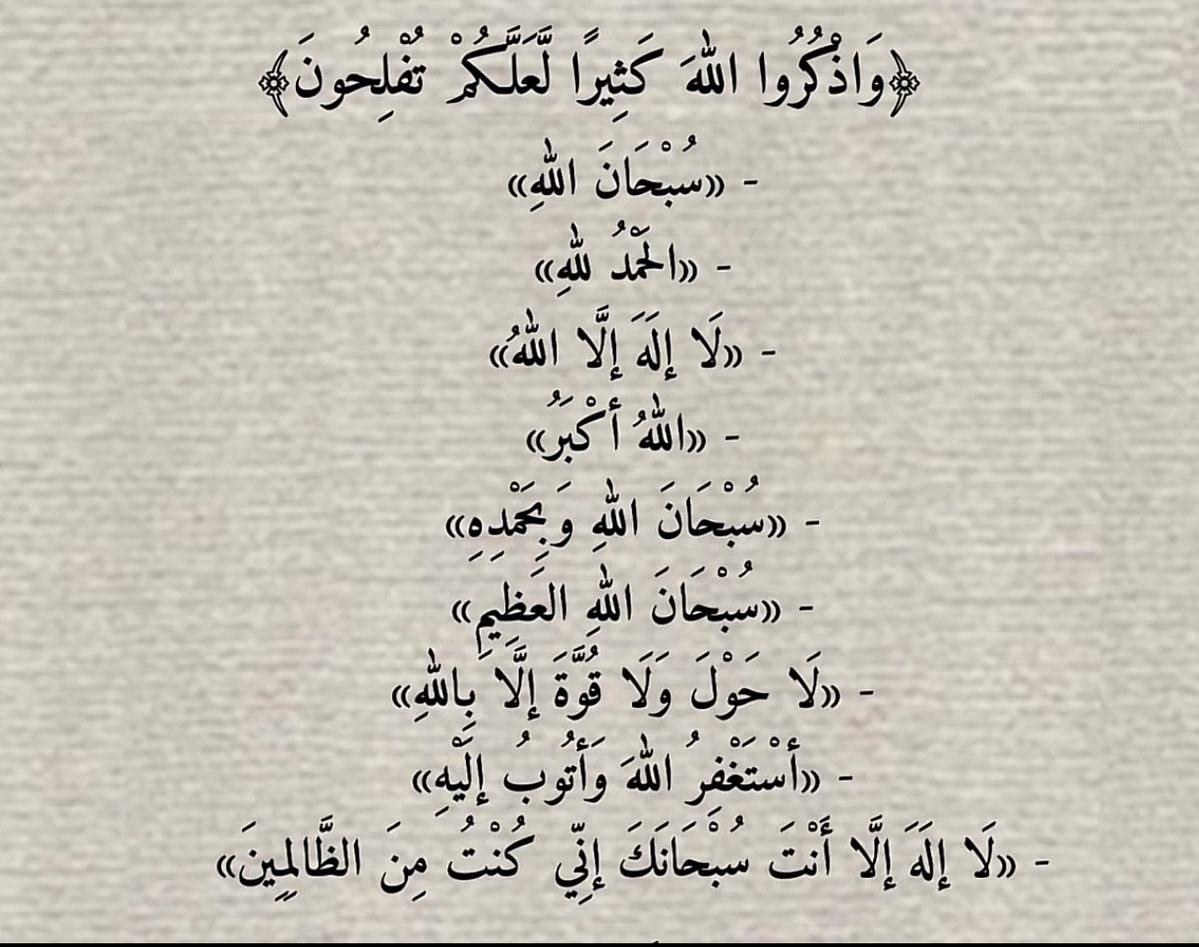 ﴿وَاذْكُرُوا اللهَ كَثِيرًا لَّعَلَّكُمْ تُفْلِحُونَ﴾
- «سُبْحَانَ اللهِ»
- «الحَمْدُ للهِ»
- «لَا إِلَهَ إِلَّا اللهُ»
- «اللهُ أَكْبَرُ»
- «سُبْحَانَ اللهِ وَبِحَمْدِهِ»
- «سُبْحَانَ اللهِ العَظِيمِ»
- «لَا حَوْلَ وَلَا قُوَّةَ إِلَّا بِاللهِ»
- «أَسْتَغْفِرُ اللهَ وَأَتُوبُ إِلَيْهِ»
- «لَا إِلَهَ إِلَّا أَنْتَ سُبْحَانَكَ إِنِّي كُنْتُ مِنَ الظَّالِمِينَ»